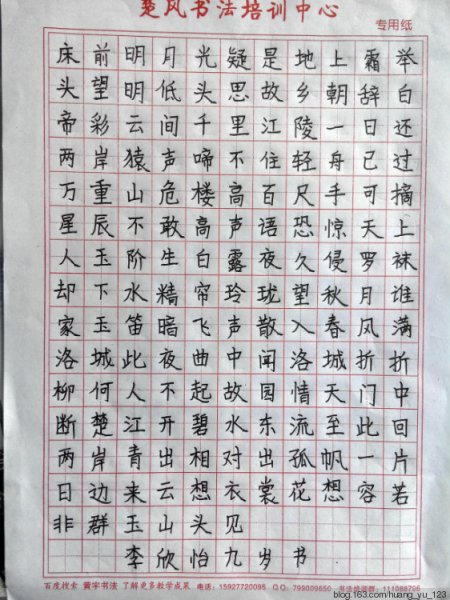 楚风书法培训中心
专用纸
床前明月光疑是地上霜举
头望明低头思故乡朝辞白
帝彩云间千里江陵一日还
两岸猿声啼不住轻舟已过
万重山危楼高百尺手可摘
星辰不敢高声语恐惊天上
人玉阶生白露夜久侵罗袜
却下水精帘玲珑望秋月谁
家玉笛暗飞声散入春风满
洛城此夜曲中闻洛城折折
柳何人不起故园情天门中
断楚江开碧水东流至此回
两岸青出相对出孤帆一片
日边来云想衣裳花想容若
非群玉山头见
李欣怡九岁书
百度搜索 黄宇书法 了解更多教学成果 电话:15927720095 QQ:799009650 书法培训群:111088796
blog.163.com/huang_yu_123